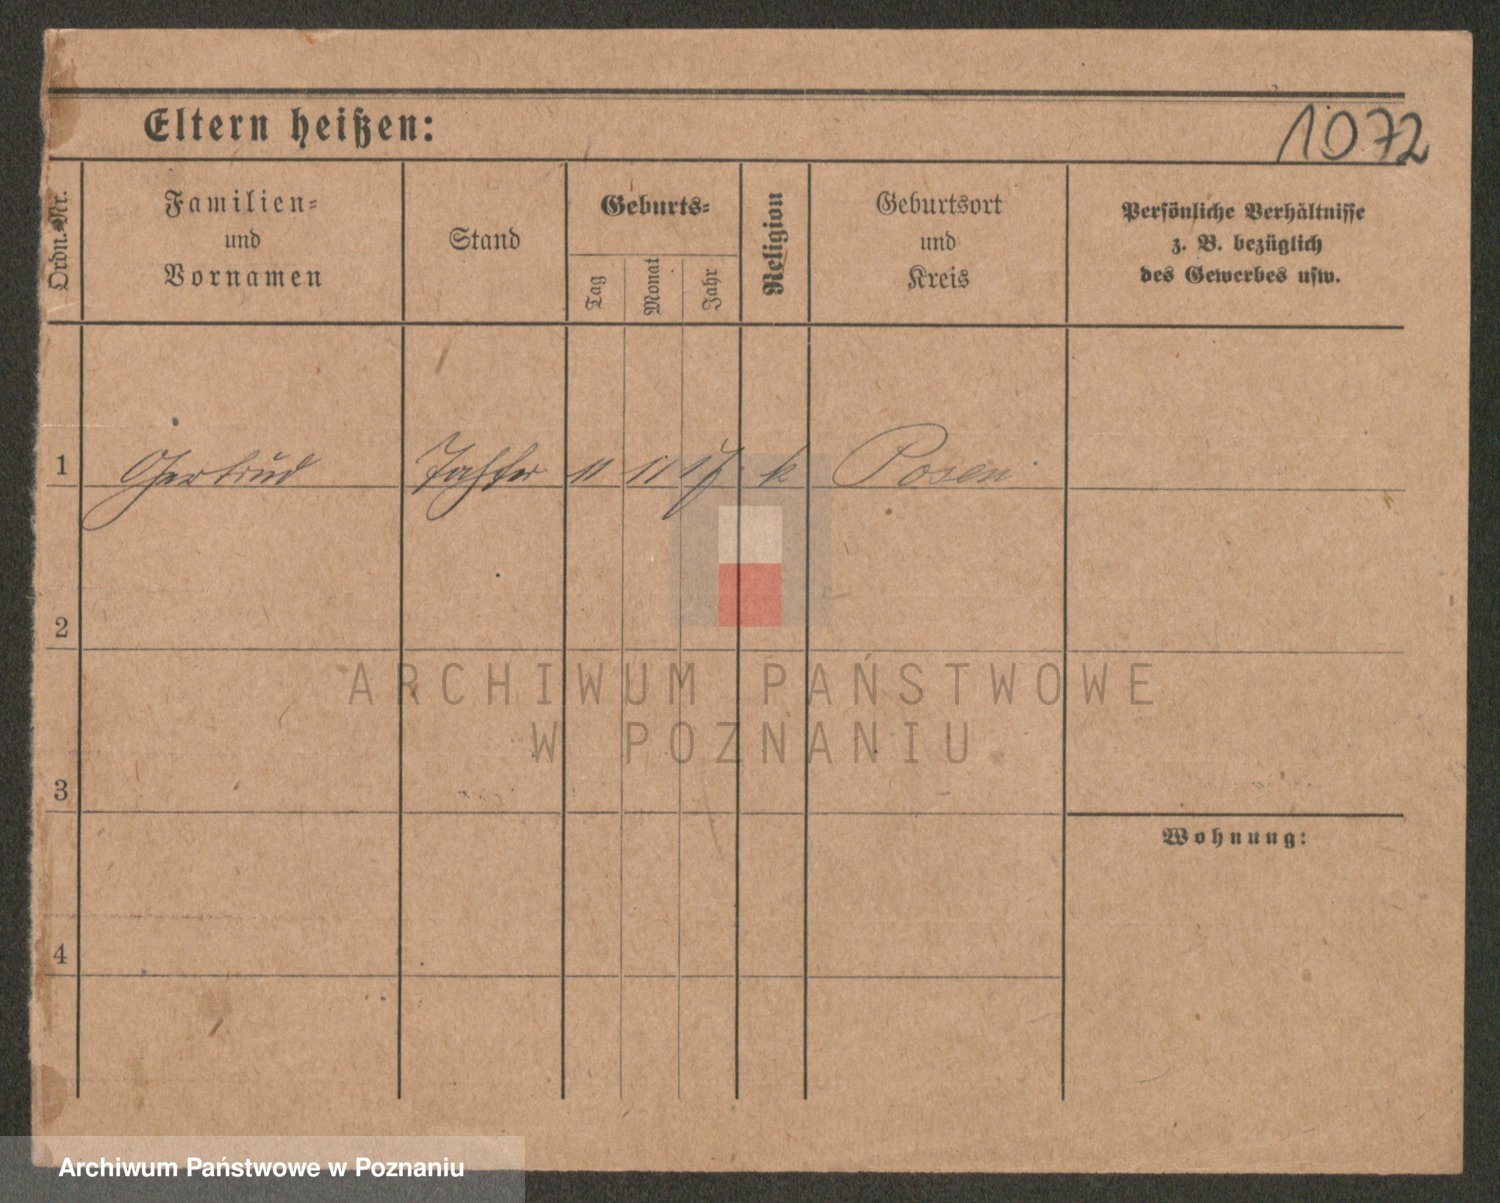 Eltern heißen:
1072
Ordn. Nr.
Familien-
und
Vornamen
Stand
Geburts-
Tag
Monat
Jahr
Religion
Geburtsort
und
Kreis
Persönliche Verhältnisse
z. B. bezüglich
des Gewerbes usw.
1 Gertrud Tochter 11 11 17 k Posen
2
ARCHIWUM PAŃSTWOWE
W POZNANIU
3
Wohnung:
4
Archiwum Państwowe w Poznaniu